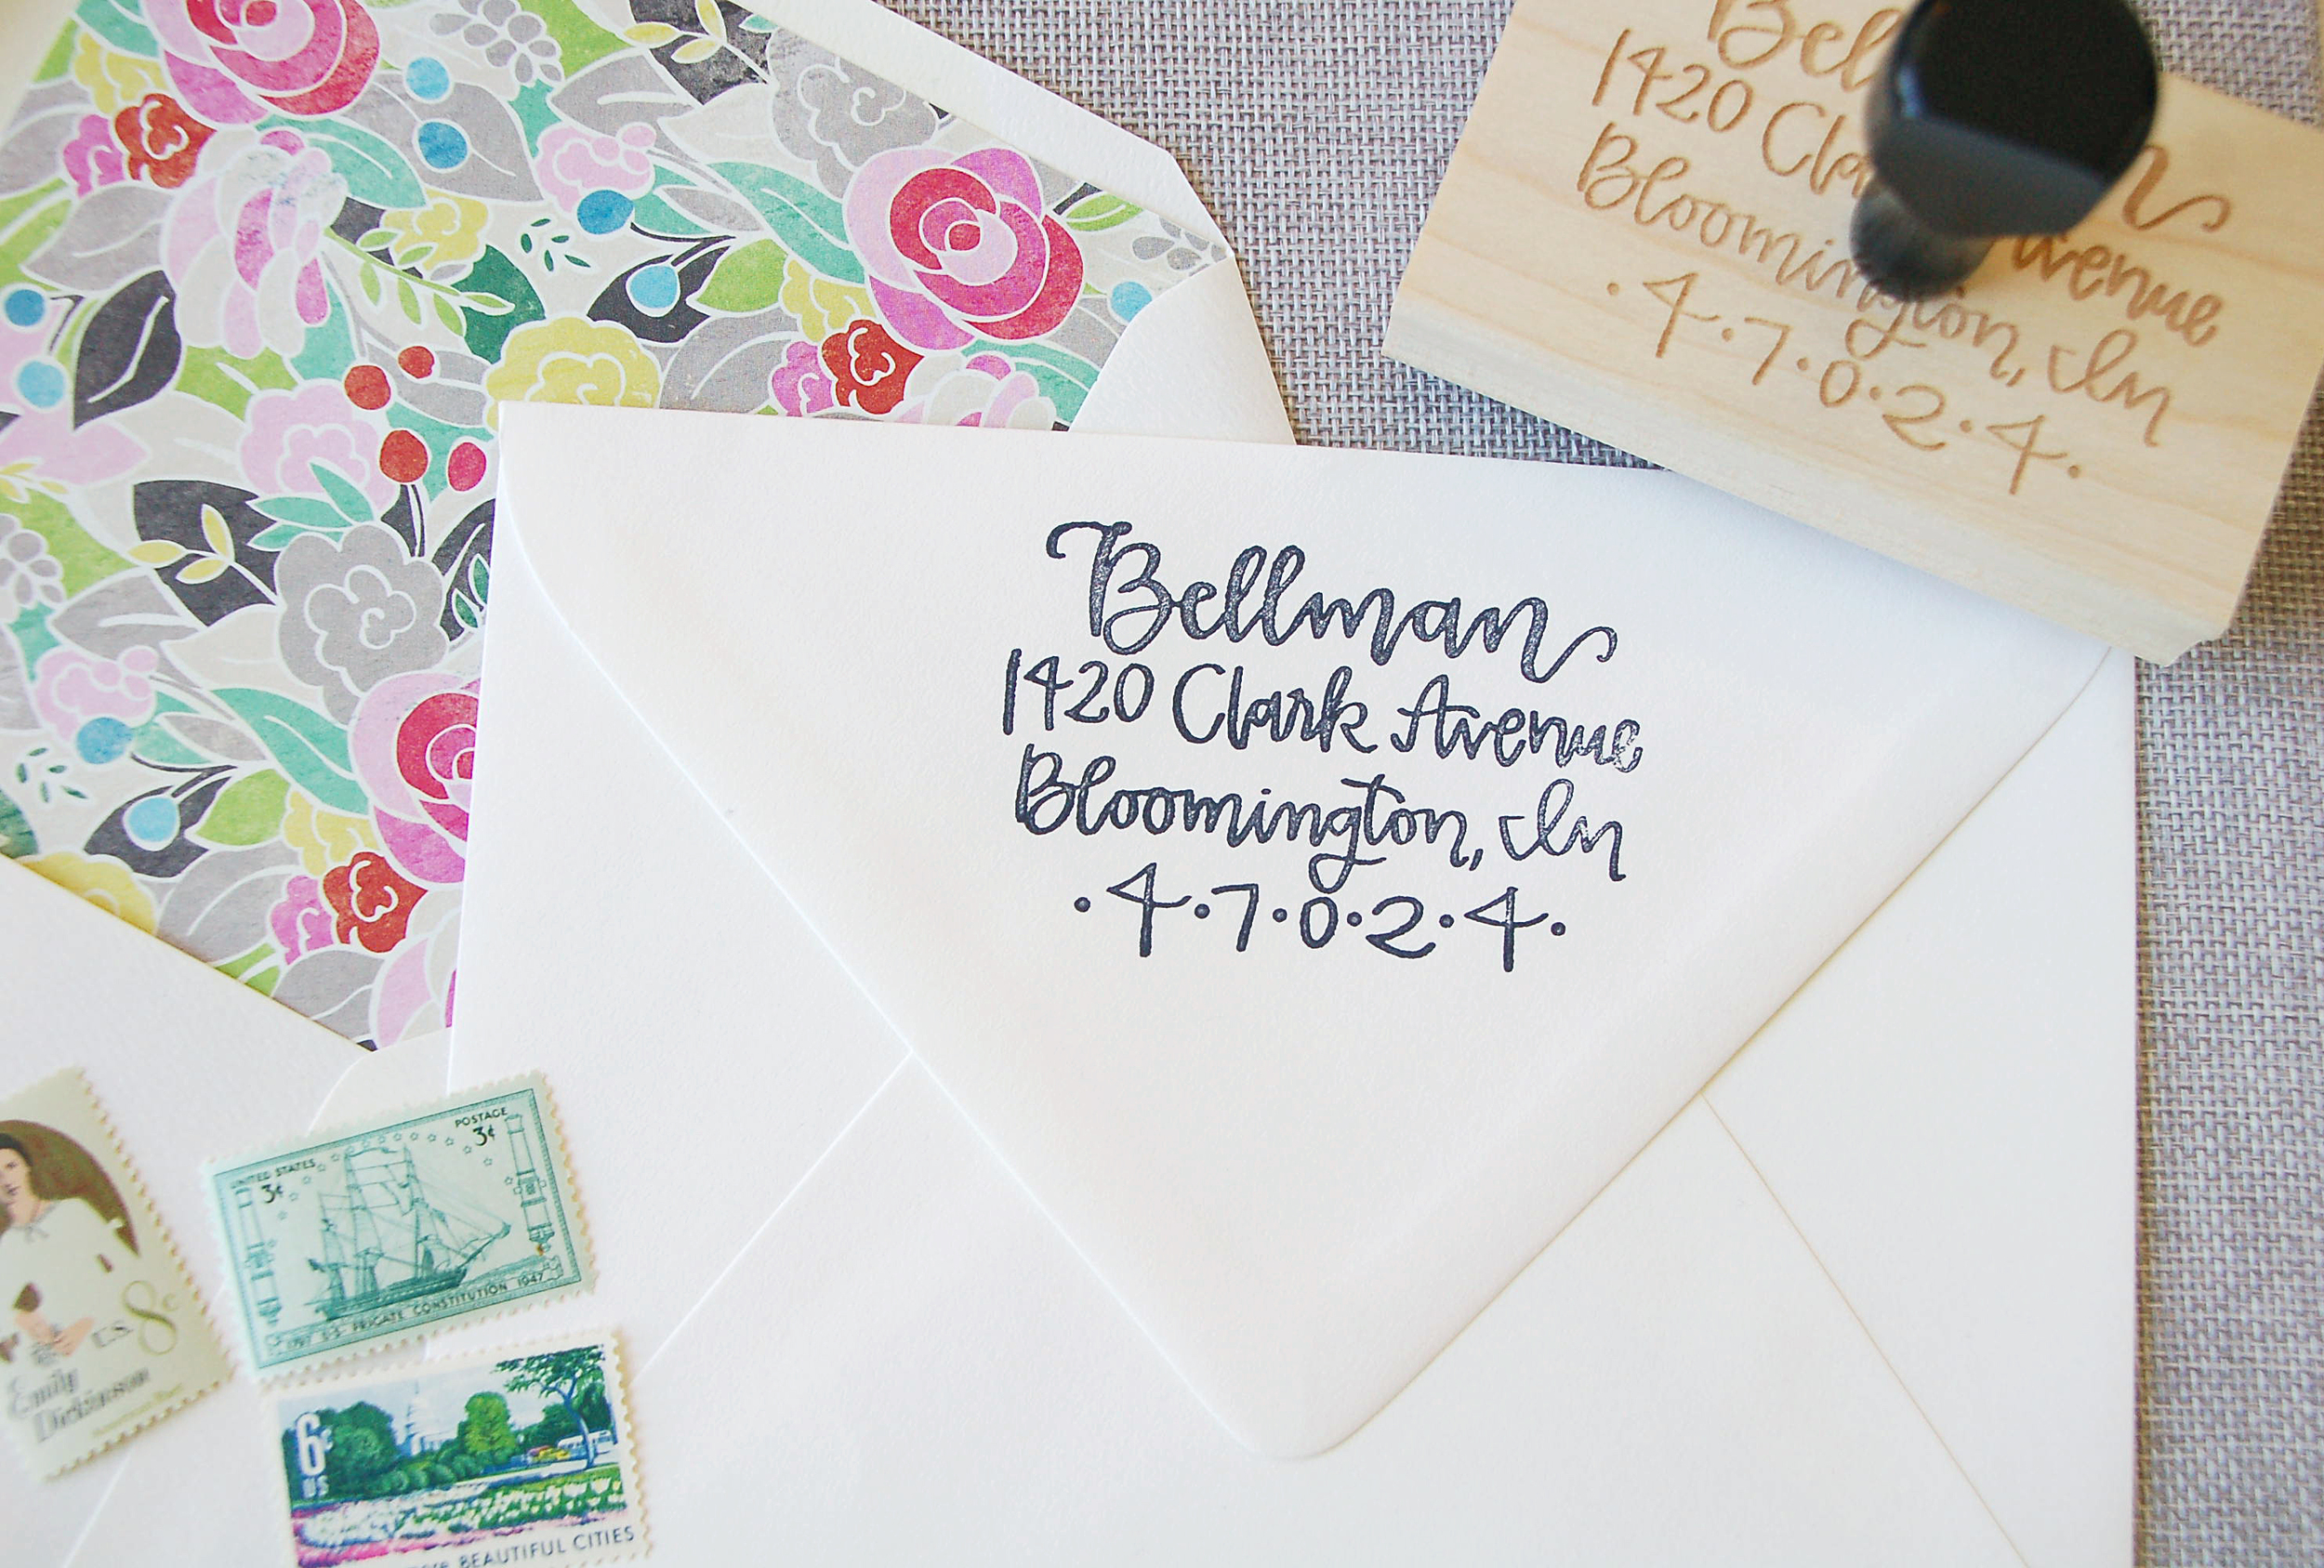 Bel
1420 Cla
venue
Bloomington, In
·4·7·0·2·4·
Bellman
1420 Clark Avenue
Bloomington, In
·4·7·0·2·4·
POSTAGE
3¢
UNITED STATES
3¢
1797 U.S. FRIGATE CONSTITUTION 1947
U.S. 8c
Emily
Dickinson
6¢
US
BEAUTIFUL CITIES